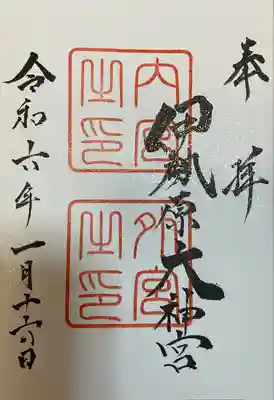 奉拝
伊勢原大神宮
内宮之印
外宮之印
令和六年一月十六日